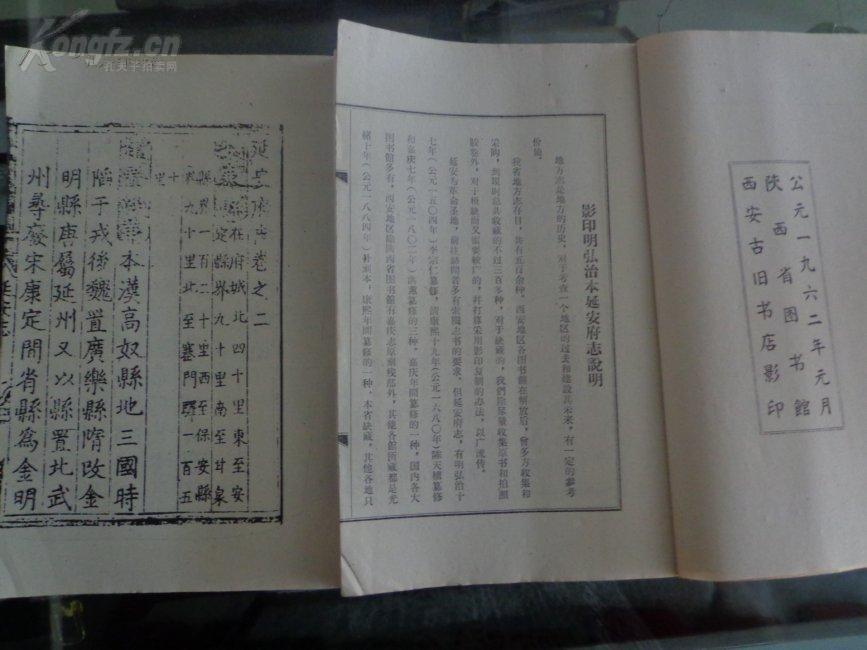 Kongfz.cn
孔夫子拍卖网
公元一九六二年元月
陕西省图书館
西安古旧书店影印
影印明弘治本延安府志說明
地方志是地方的历史，对于考查一个地区的过去和建設其未来，有一定的参考
价值。
我省地方志存目，共有五百余种。西安地区各图书館在解放后，曾多方收集和
采购，到現时总共收藏的不过三百多种，对于缺藏的，我們除尽量收集原书和拍照
胶卷外，对于極缺而又需要較广的，并打算采用影印复制的办法，以广流传。
延安为革命圣地，前往訪問者多有索閱志书的要求。但延安府志，有明弘治十
七年（公元一五〇四年）李宗仁纂修，清康熙十九年（公元一六八〇年）陈天植纂修
和嘉庆七年（公元一八〇二年）洪蕙纂修的三种，嘉庆年間纂修的一种，国内各大
图书館多有，西安地区除陕西省图书館有嘉庆志原刻残部外，其他各館所藏都是光
緒十年（公元一八八四年）补刻本，康熙年間纂修的一种，本省缺藏，其他各地只
延安府志卷之二
在府城北四十里東至安
定縣界九十里南至甘泉
縣界一百二十里西至保安縣
界九十里北至塞門驛一百五
十里
本漢高奴縣地三國時
陷于戎後魏置廣樂縣隋改金
明縣唐屬延州又以縣置北武
州尋廢宋康定間省縣爲金明